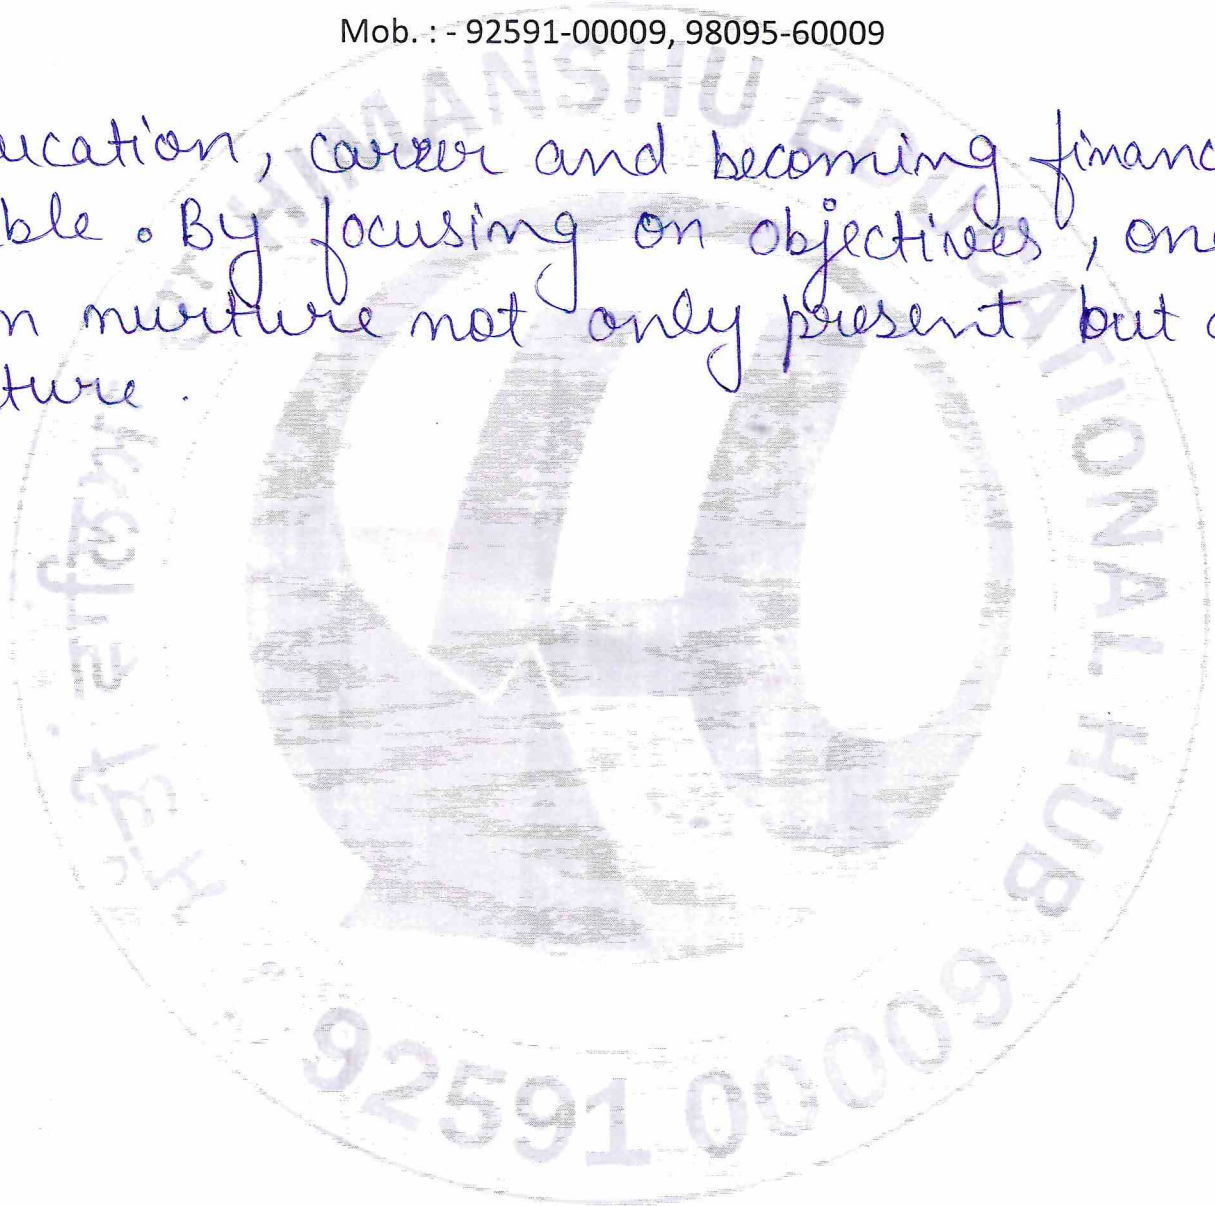 Mob. : - 92591-00009, 98095-60009
ucation, career and becoming financ
ble. By focusing on objectives, one
n nurture not only present but
ture.
HIMANSHU EDUCATIONAL HUB
92591 00009